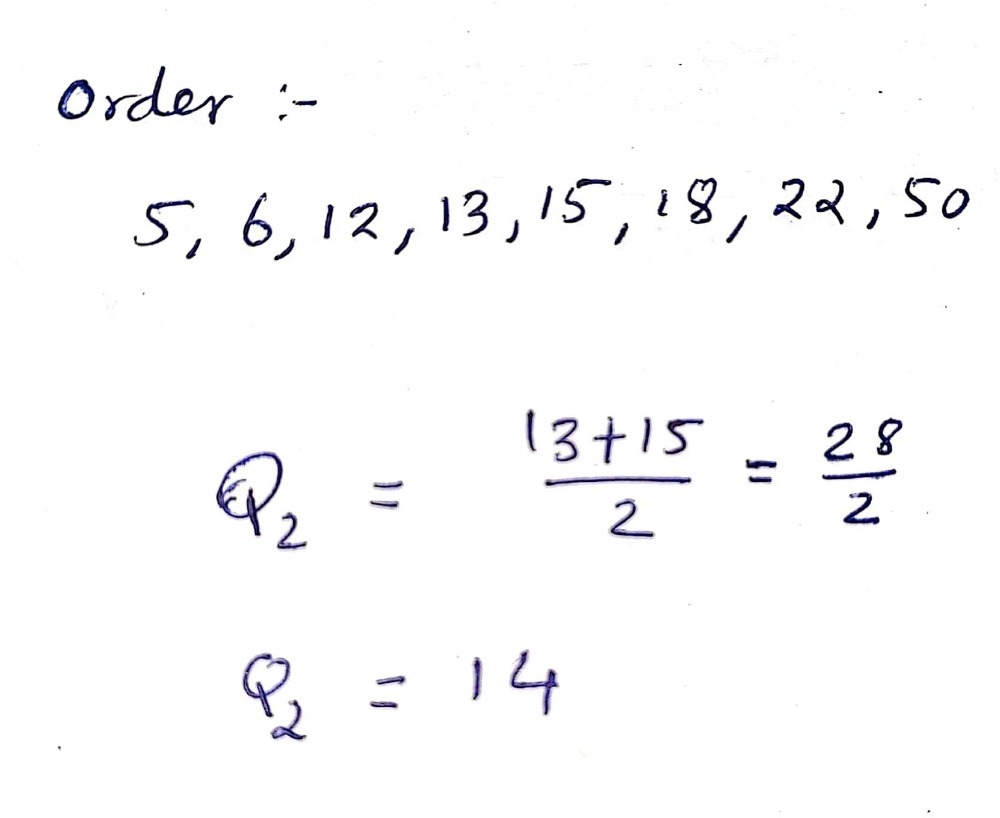 Order :-
5, 6, 12, 13, 15, 18, 22, 50
Q₂ = (13+15)/2 = 28/2
Q₂ = 14